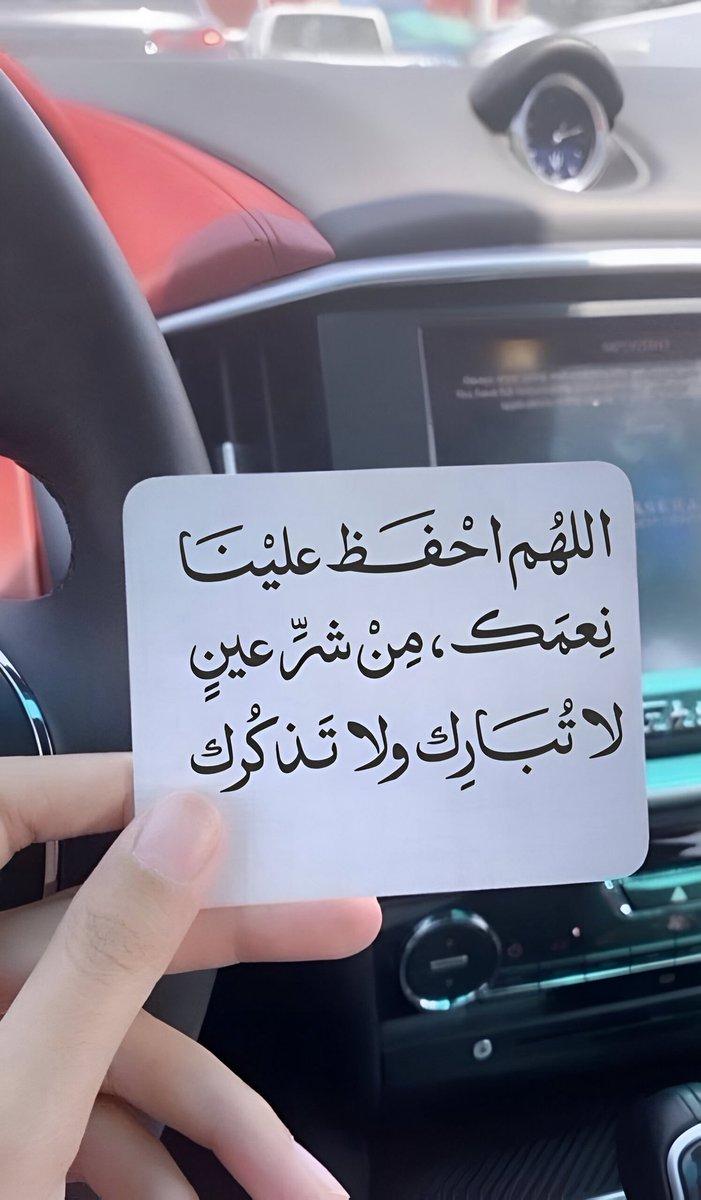 اللهُم احْفَظ عليْنَا
نِعمَك، مِنْ شرِّ عينٍ
لا تُبَارِك ولا تَذكُرك